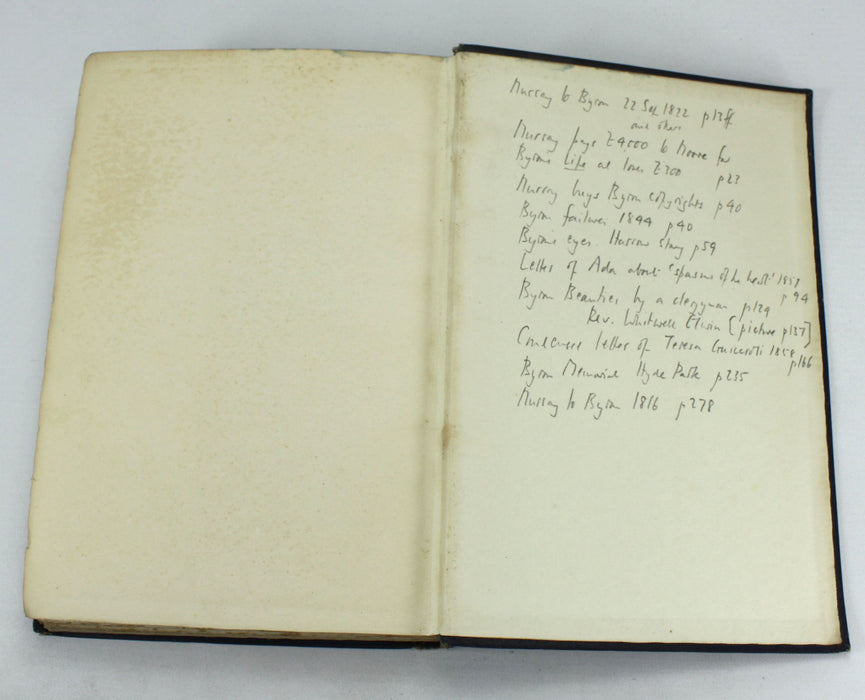 Murray to Byron 22 Sep 1822 p12ff
and others
Murray pays £4000 to Moore for
Byron's Life at loss £300 p23
Murray buys Byron copyrights p40
Byron failures 1844 p40
Byron's eyes. Harrow story p59
Letter of Ada about 'spasms of the heart' 1851
p94
Byron Beauties by a clergyman p129
Rev. Whitwell Elwin [picture p137]
letter of Teresa Guiccioli 1858
p166
Byron Memorial Hyde Park p235
Murray to Byron 1816 p278